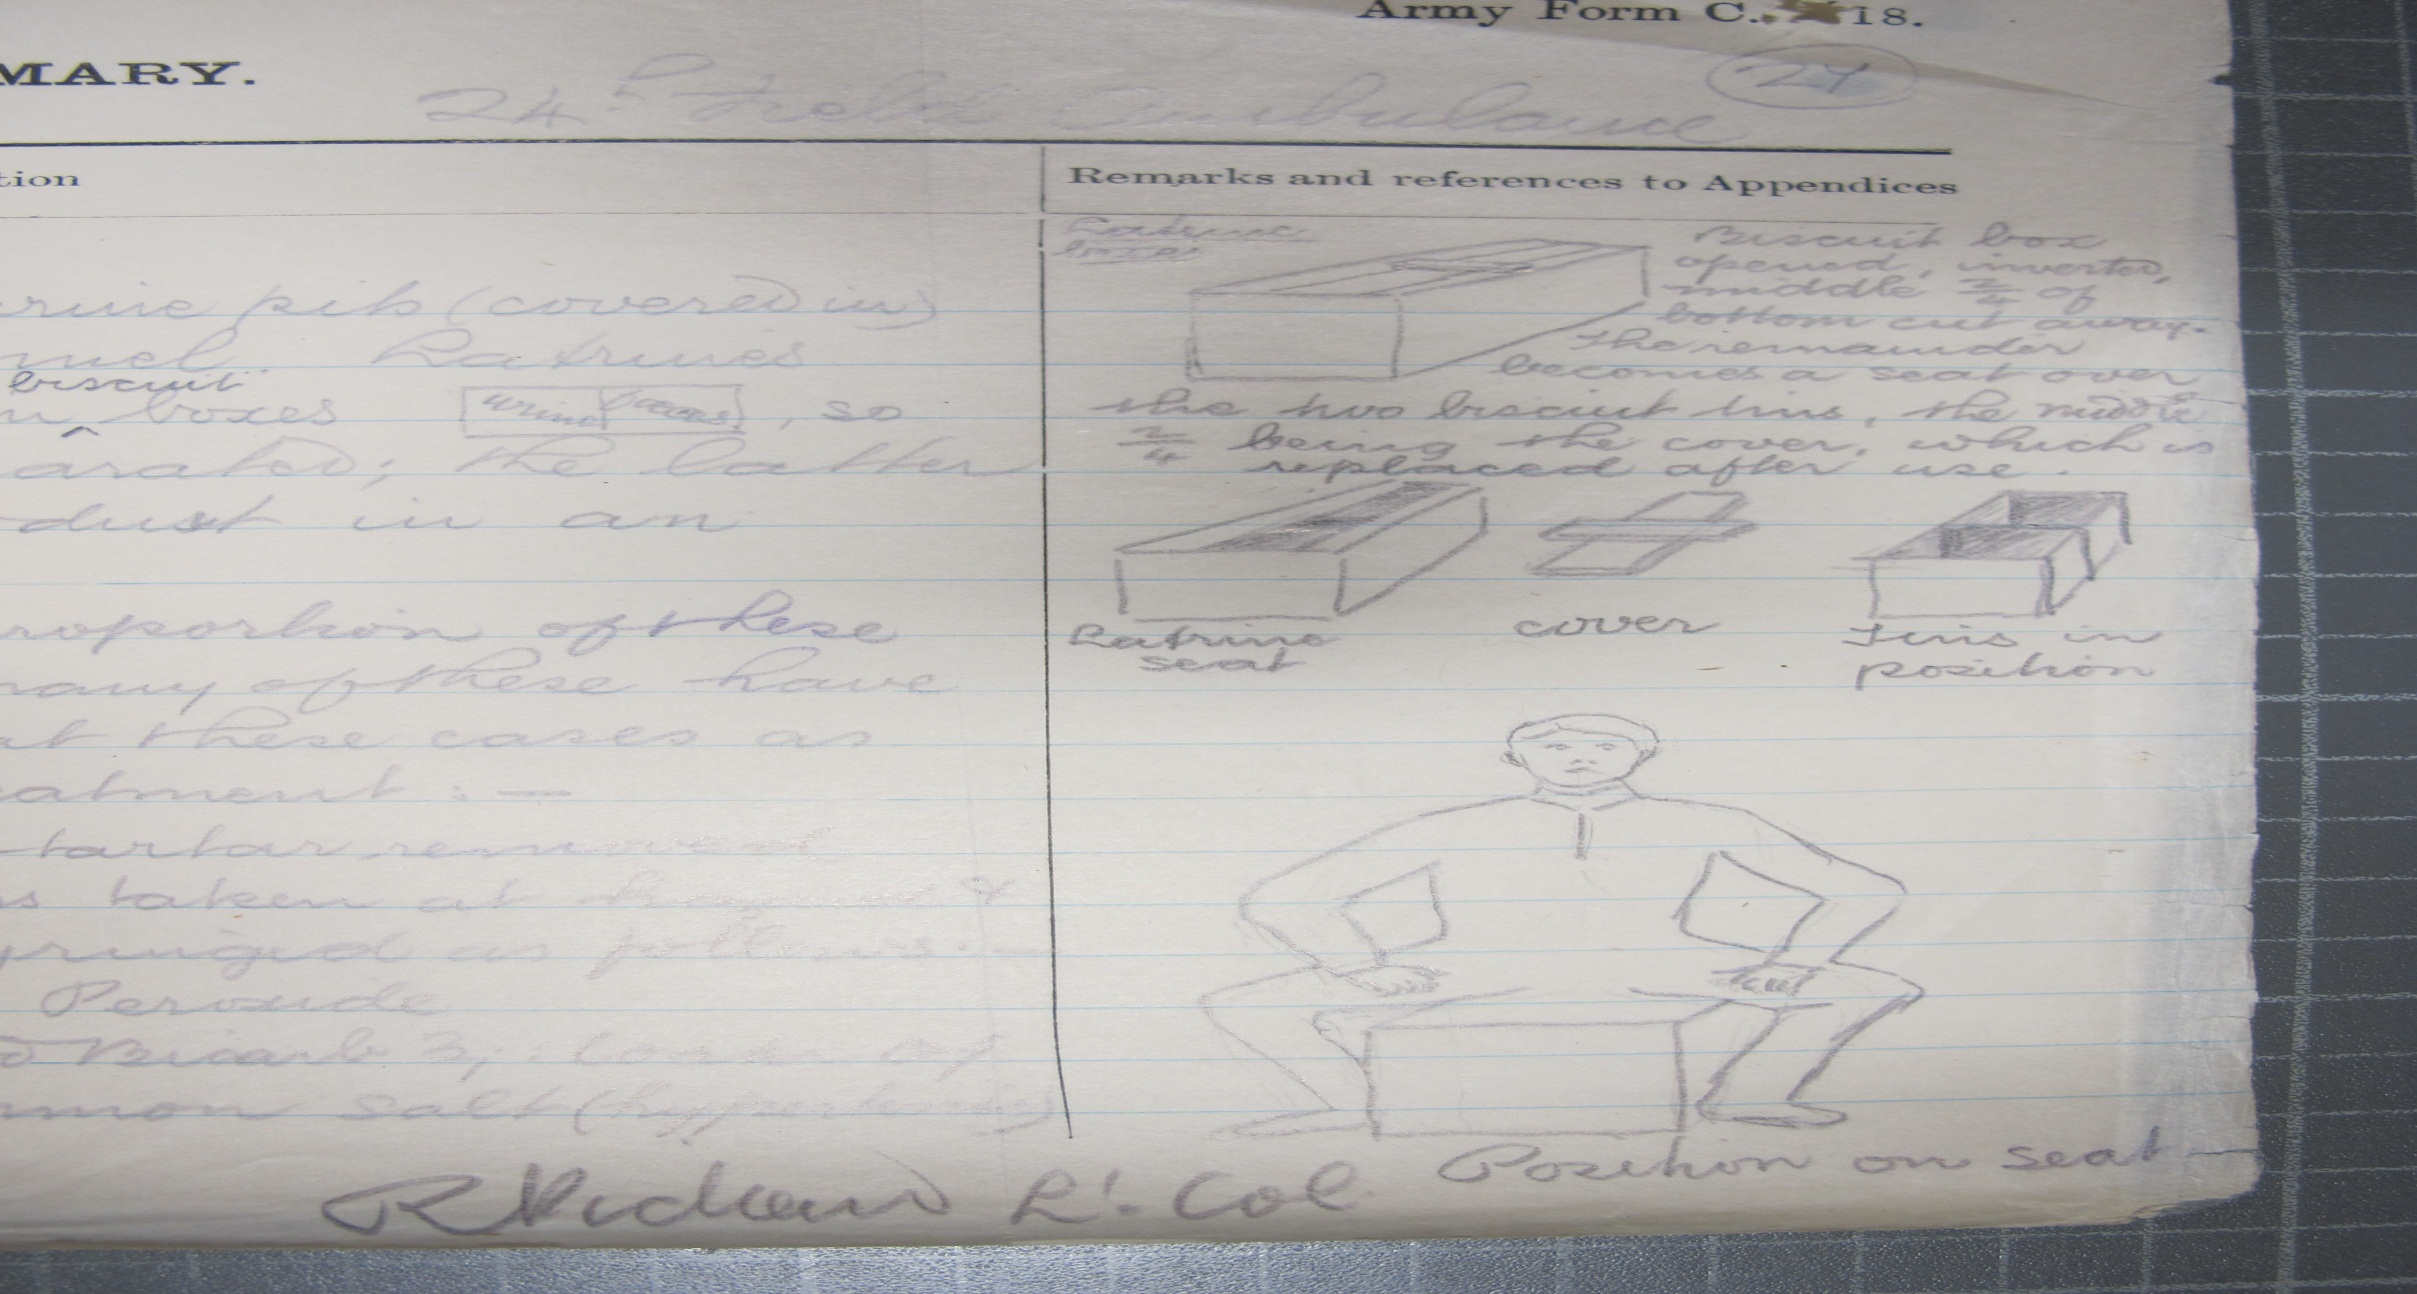 Army Form C. 18.
MARY.
24th Field Ambulance
24
tion
Remarks and references to Appendices
urine pits (covered in)
Latrines
biscuit
boxes urine faeces, so
arated; the latter
dust in an
roportion of these
many of these have
at these cases as
eatment :—
tartar removed
s taken at &
yringed as follows :—
Peroxide
Bicarb
mmon salt (hypertonic)
Latrine
boxes
Biscuit box
opened, inverted,
middle 2/4 of
bottom cut away.
The remainder
becomes a seat over
the two biscuit tins, the middle
2/4 being the cover, which is
replaced after use.
Latrine
seat
cover
Tins in
position
Position on seat
Lt. Col